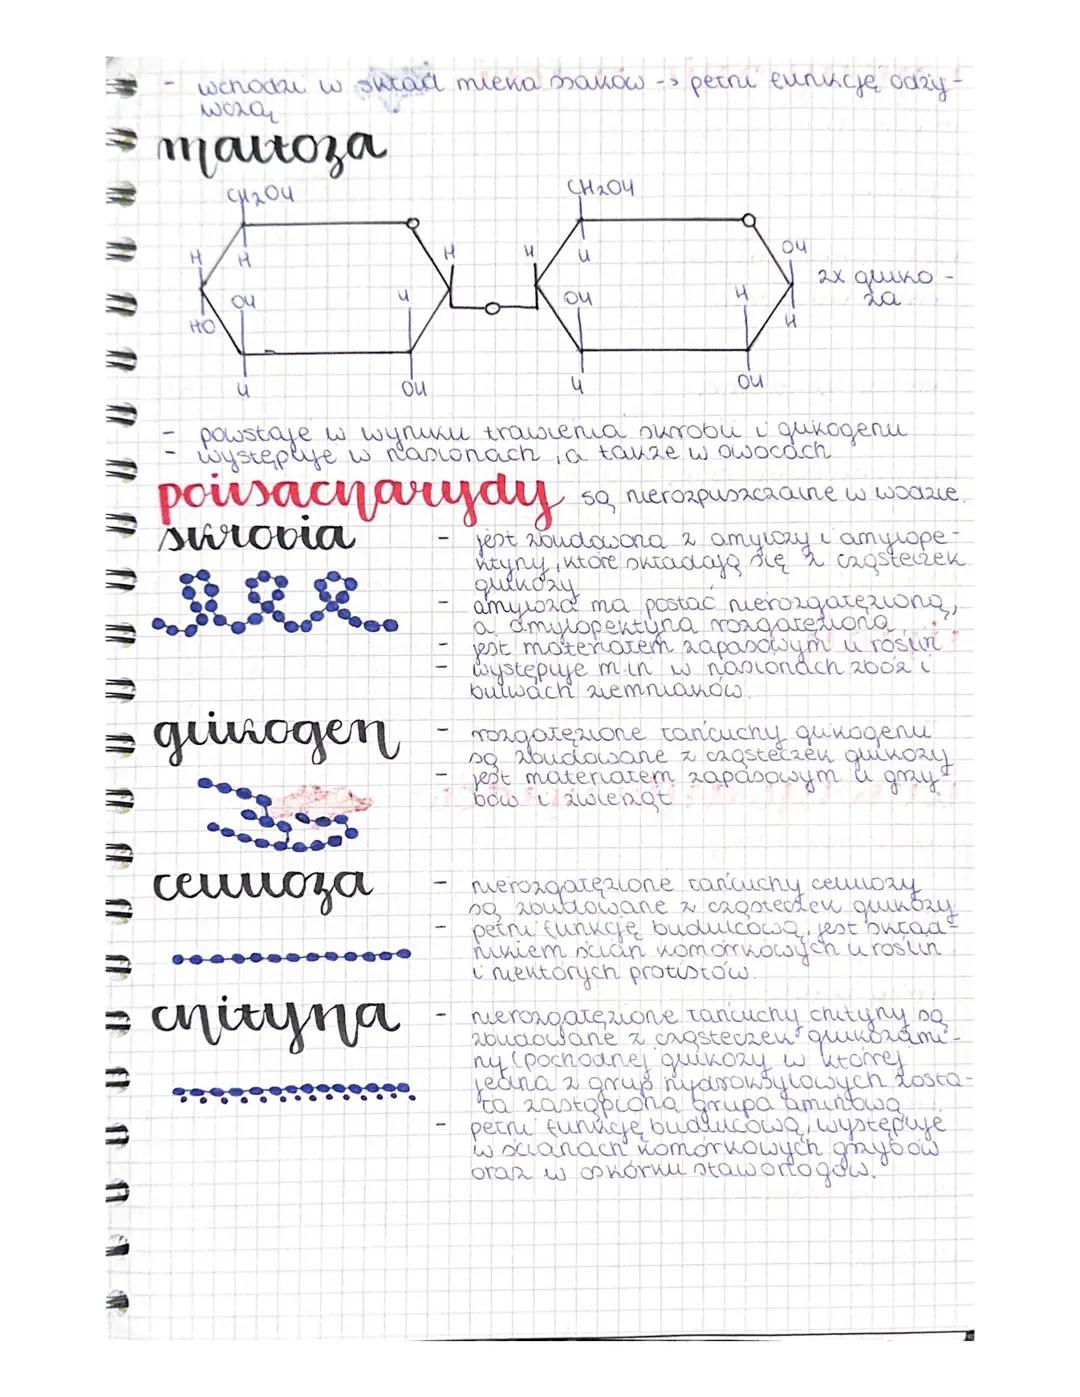 - wchodzi w skład mleka ssaków -> pełni funkcję odży-
wczą
maltoza
CH2OH
CH2OH
H
H
H
H
H
OH
2x gluko-
za
OH
H
OH
H
HO
H
H
OH
H
OH
- powstaje w wyniku trawienia skrobii i glikogenu
- występuje w nasionach, a także w owocach
polisacharydy są nierozpuszczalne w wodzie.
skrobia
- jest zbudowana z amylozy i amylope-
ktyny, które składają się z cząsteczek
glukozy
- amyloza ma postać nierozgałęzioną,
a amylopektyna rozgałęzioną
- jest materiałem zapasowym u roślin
- występuje m.in w nasionach zbóż i
bulwach ziemniaków.
glikogen
- rozgałęzione łańcuchy glikogenu
są zbudowane z cząsteczek glukozy
- jest materiałem zapasowym u grzy-
bów i zwierząt
celuloza
- nierozgałęzione łańcuchy celulozy
są zbudowane z cząsteczek glukozy
- pełni funkcję budulcową, jest skład-
nikiem ścian komórkowych u roślin
i niektórych protistów.
chityna
- nierozgałęzione łańcuchy chityny są
zbudowane z cząsteczek glukozami-
ny (pochodnej glukozy w której
jedna z grup hydroksylowych zosta-
ła zastąpiona grupą aminową
- pełni funkcję budulcową, występuje
w ścianach komórkowych grzybów
oraz w oskórku stawonogów.